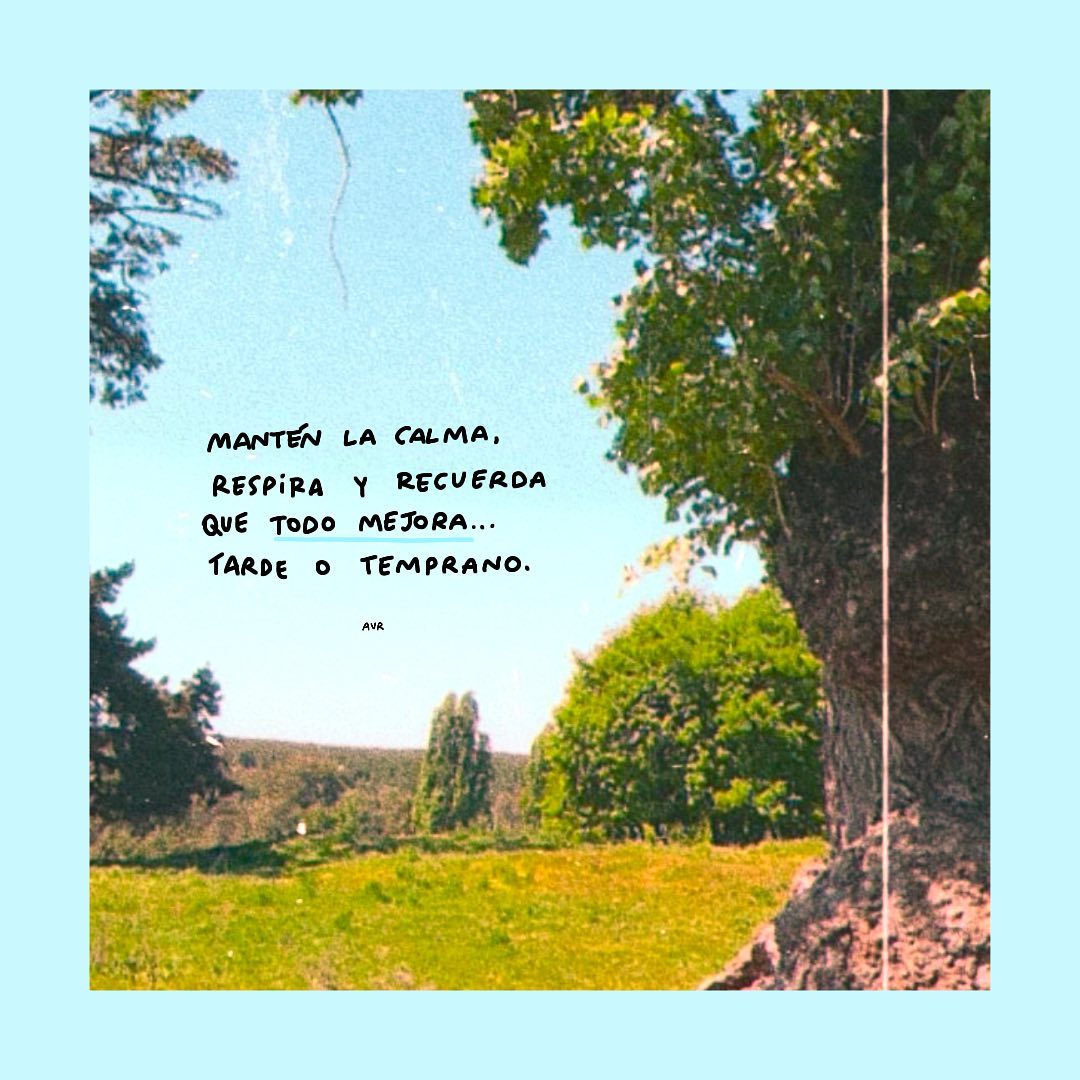 MANTÉN LA CALMA,
RESPIRA Y RECUERDA
QUE TODO MEJORA...
TARDE O TEMPRANO.
AVR